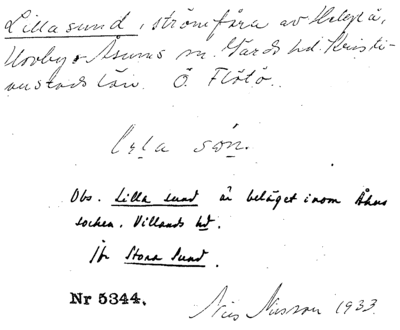 Lilla sund, strömfåra av Helgeå,
Norby o Åsums sn. Gärds hd. Kristi-
anstads län. Ö. Flötö.
sön.
Obs. Lilla sund är beläget inom Åhus
socken. Villands hd.
Jfr Stora Sund.
Nr 5344.
Nils Nilsson 1933.